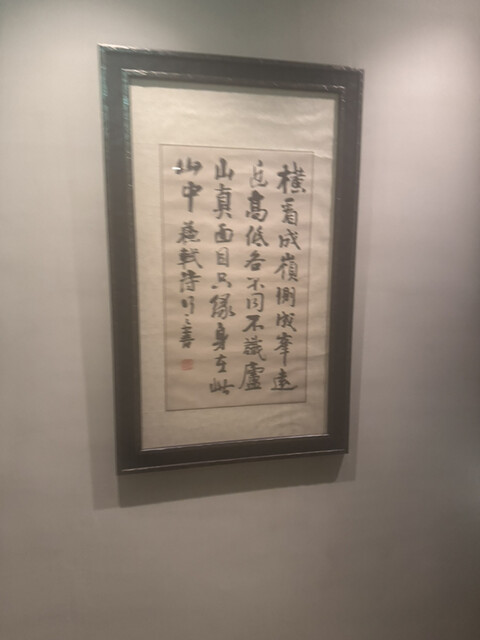 橫看成嶺側成峯遠
近高低各不同不識廬
山真面目只緣身在此
山中蘇軾詩行之書